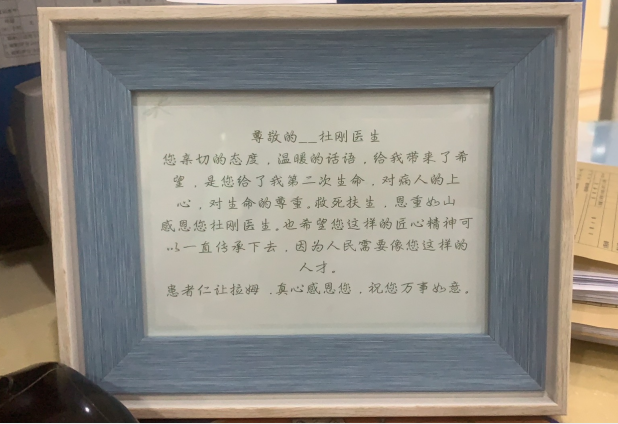 尊敬的__杜刚医生
您亲切的态度，温暖的话语，给我带来了希
望，是您给了我第二次生命，对病人的上
心，对生命的尊重。救死扶生，恩重如山
感恩您杜刚医生。也希望您这样的匠心精神可
以一直传承下去，因为人民需要像您这样的
人才。
患者仁让拉姆，真心感恩您，祝您万事如意。